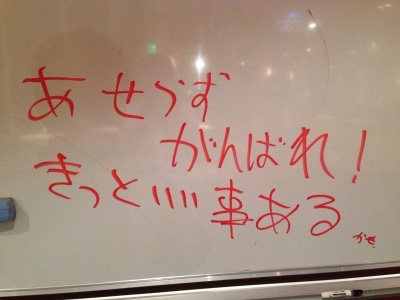 あせらず
がんばれ！
きっといいい事ある